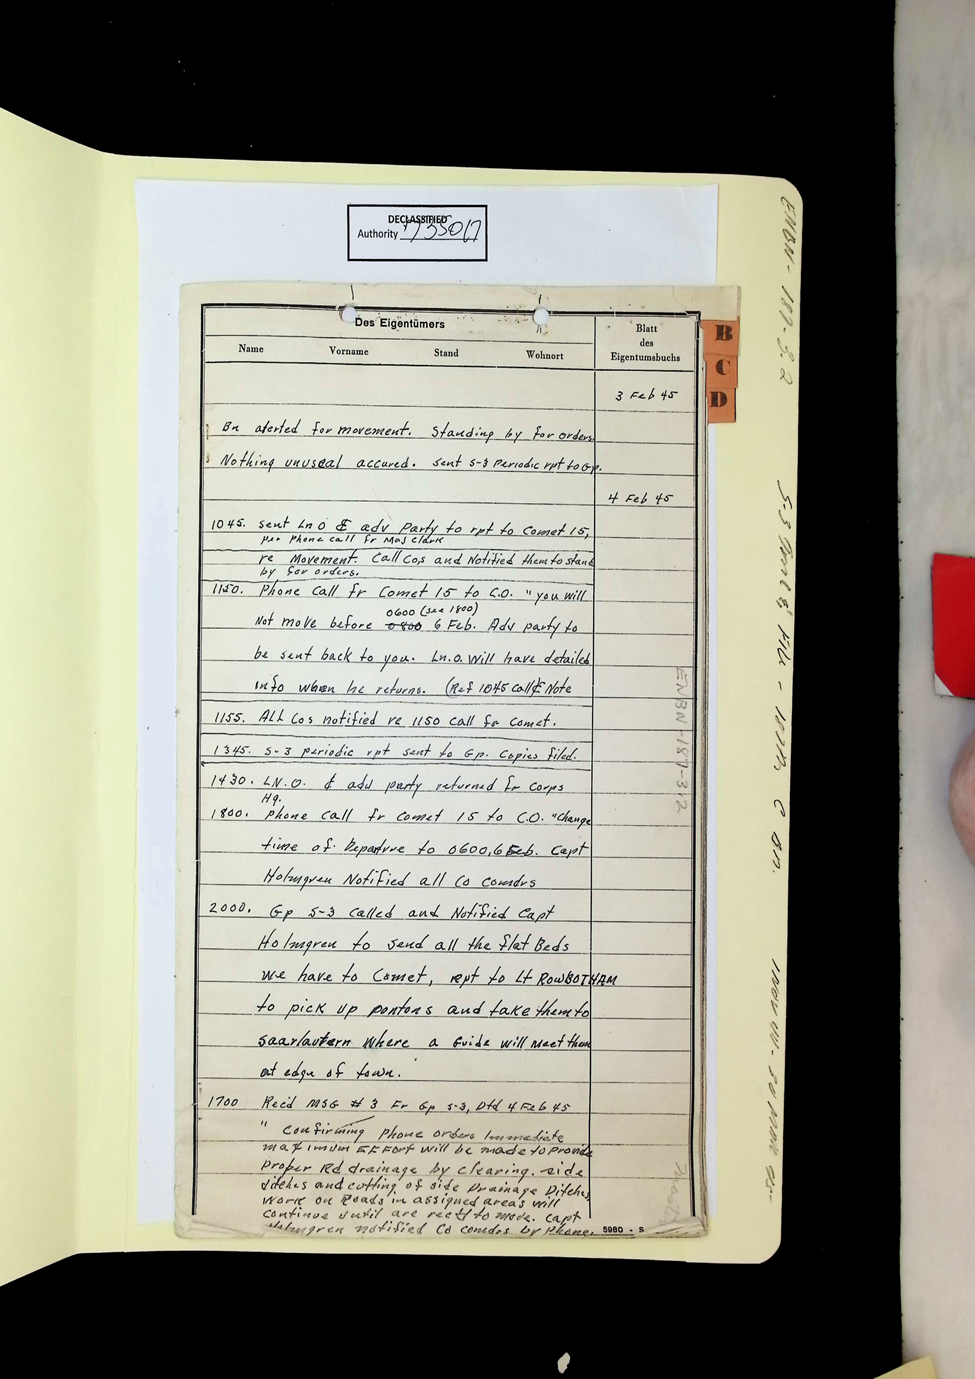 DECLASSIFIED
Authority 735017
Des Eigentümers
Blatt
des
Eigentumsbuchs
Name Vorname Stand Wohnort
B
C
D
3 Feb 45
Bn alerted for movement. Standing by for orders
Nothing unusual accured. Sent S-3 Periodic rpt to Gp.
4 Feb 45
1045. sent Ln O & adv Party to rpt to Comet 15,
per phone call fr Maj Clark
re Movement. Call Cos and Notified them to stand
by for orders.
1150. Phone call fr Comet 15 to C.O. "you will
0600 (see 1800)
Not move before 0800 6 Feb. Adv party to
be sent back to you. Ln.O. will have detailed
info when he returns. (Ref 1045 call & Note
1155. ALL Cos notified re 1150 call fr Comet.
1345. S-3 periodic rpt sent to Gp. Copies filed.
1430. LN.O. & adv party returned fr Corps
Hq.
1800. Phone call fr Comet 15 to C.O. "Change
time of Departure to 0600, 6 Feb. Capt
Holmgren Notified all Co Comdrs
2000. Gp S-3 called and Notified Capt
Holmgren to send all the flat Beds
we have to Comet, rpt to Lt ROWBOTHAM
to pick up pontons and take them to
Saarlautern Where a Guide will meet them
at edge of town.
1700 Rec'd MSG # 3 Fr Gp S-3, Dtd 4 Feb 45
" Confirming Phone orders Immediate
maximum EFFort will be made to Provide
Proper Rd drainage by clearing side
ditches and cutting of side Drainage Ditches
work on Roads in assigned areas will
continue until are to move. Capt
Holmgren notified Co comdrs by Phone.
5980 - S
ENBN-187-3.2
ENBN-187-3.2
S-3 File